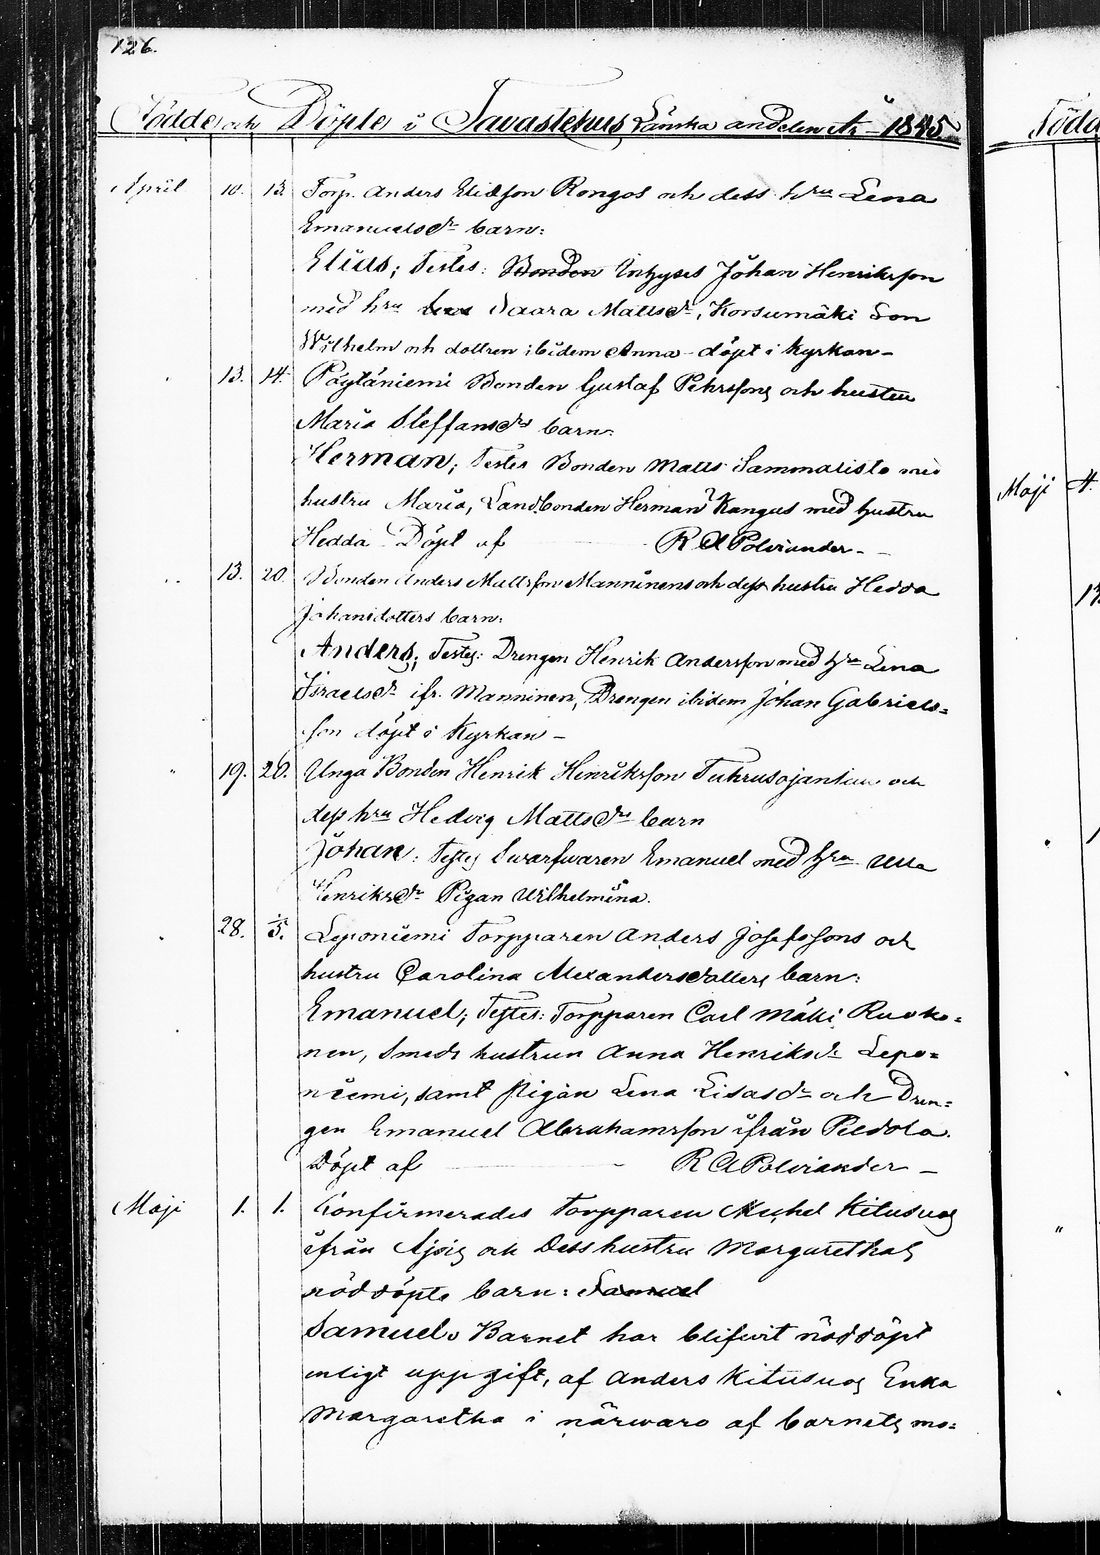 126.
Födde och Döpte i Tavastehus Länska andelen År 1845
Född
April 10. 13. Torp. Anders Eliasson Rongos och dess hru Lena
Emanuelsdr barn:
Elias; Testes: Bonden Inhyses Johan Henriksson
med hru Saara Mattsdr, Korsumäki Son
Wilhelm och dottren ibidem Anna - döpt i Kyrkan -
13. 14. Pöytäniemi Bonden Gustaf Pehrssons och hustru
Maria Steffansdrs barn:
Herman; Testes Bonden Matts Sammalisto med
hustru Maria, Landbonden Herman Kangas med hustru
Hedda - Döpt af R A Polviander -
13. 20. Bonden Anders Mattsson Manninens och dess hustru Hedda
Johansdotters barn:
Anders; Testes: Drengen Henrik Andersson med hru Lena
Israelsdr ifr. Manninen, Drengen ibidem Johan Gabriels=
son döpt i Kyrkan -
19. 20. Unga Bonden Henrik Henriksson och
dess hru Hedvig Mattsdrs barn
Johan: Testes Swarfwaren Emanuel med hru Ulla
Henriksdr Pigan Wilhelmina.
28. 1/5. Leponiemi Torpparen Anders Josefssons och
hustru Carolina Alexandersdotters barn:
Emanuel; Testes: Torpparen Carl Mäki, Ruoko=
nen, Smeds hustrun Anna Henriksdr Lepo=
niemi, samt pigan Lena Lisasdr och Dren=
gen Emanuel Abrahamsson ifrån Peldola.
Döpt af R A Polviander -
Maji 1. 1. Confirmerades Torpparen Michel Kitusuos
ifrån Ajois och Dess hustru Margarethas
nöddöpta barn: Samuel
Samuel. Barnet har blifwit nöddöpt
enligt uppgift, af Anders Kitusuos Enka
Margaretha i närwaro af barnets mo=
Maji 4.